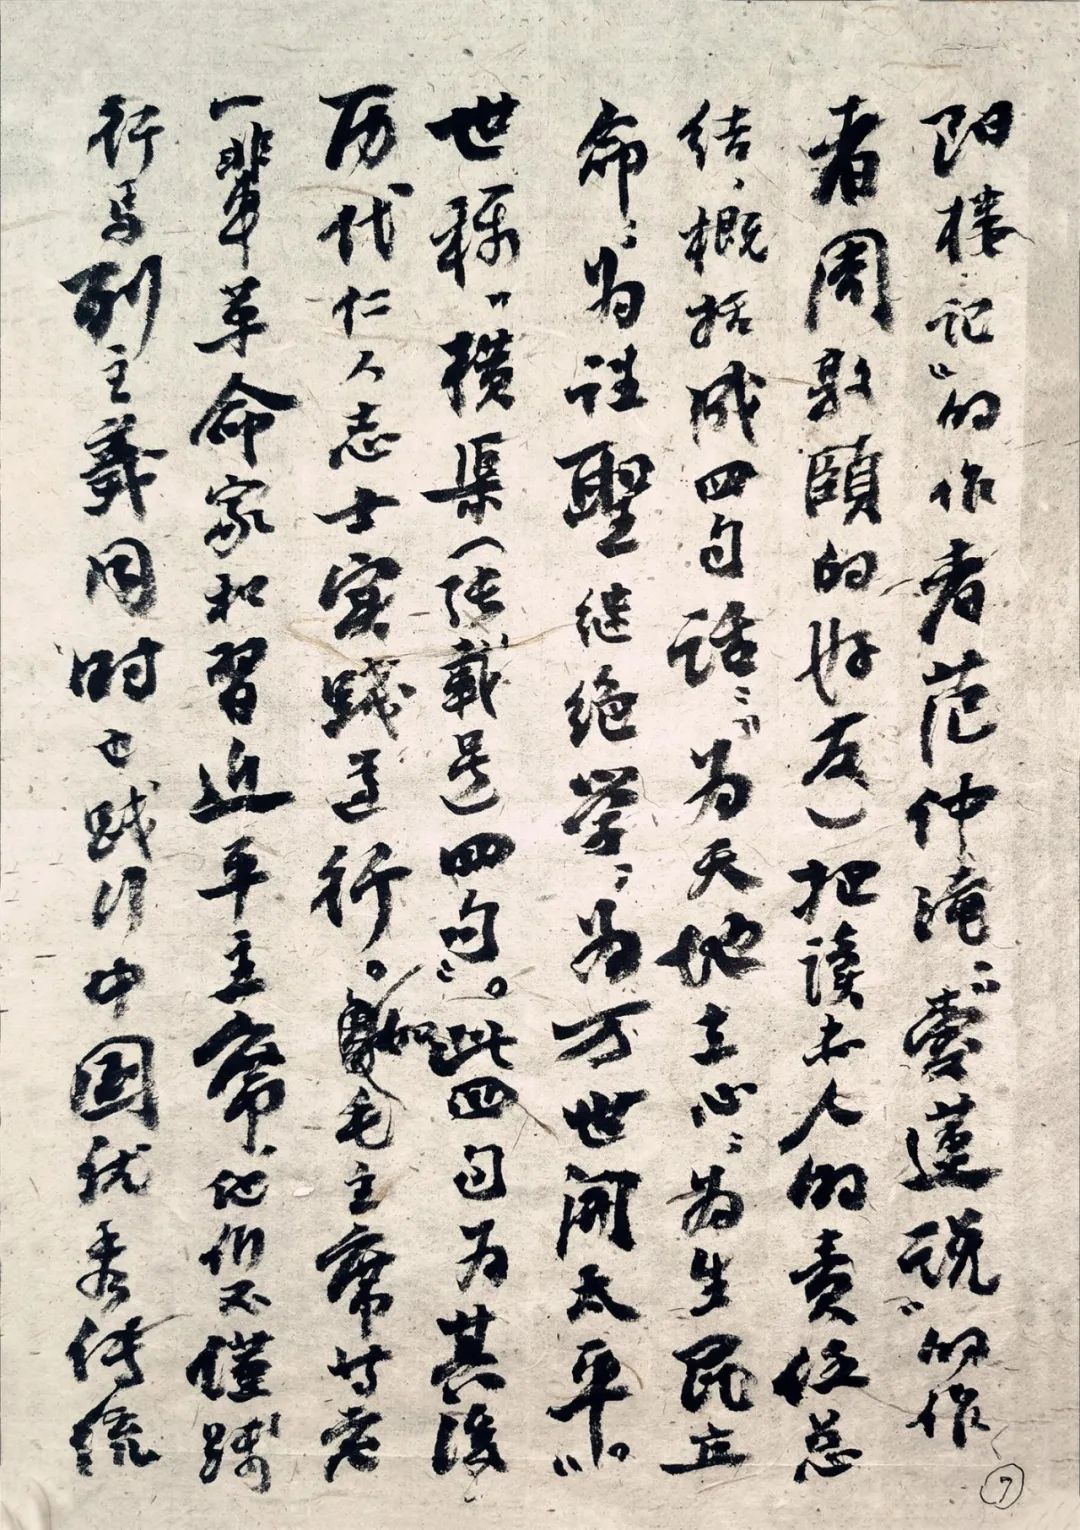 阳楼记”的作者范仲淹、“爱莲说”的作
者周敦颐的好友）把读书人的责任总
结、概括成四句话：“为天地立心，为生民立
命，为往聖继绝学，为万世開太平”。
世称“横渠（张载号）四句”。此四句为其後
历代仁人志士实践遵行。如毛主席等老
一辈革命家和習近平主席，他们不僅踐
行马列主義同时也践行中国优秀传统
7